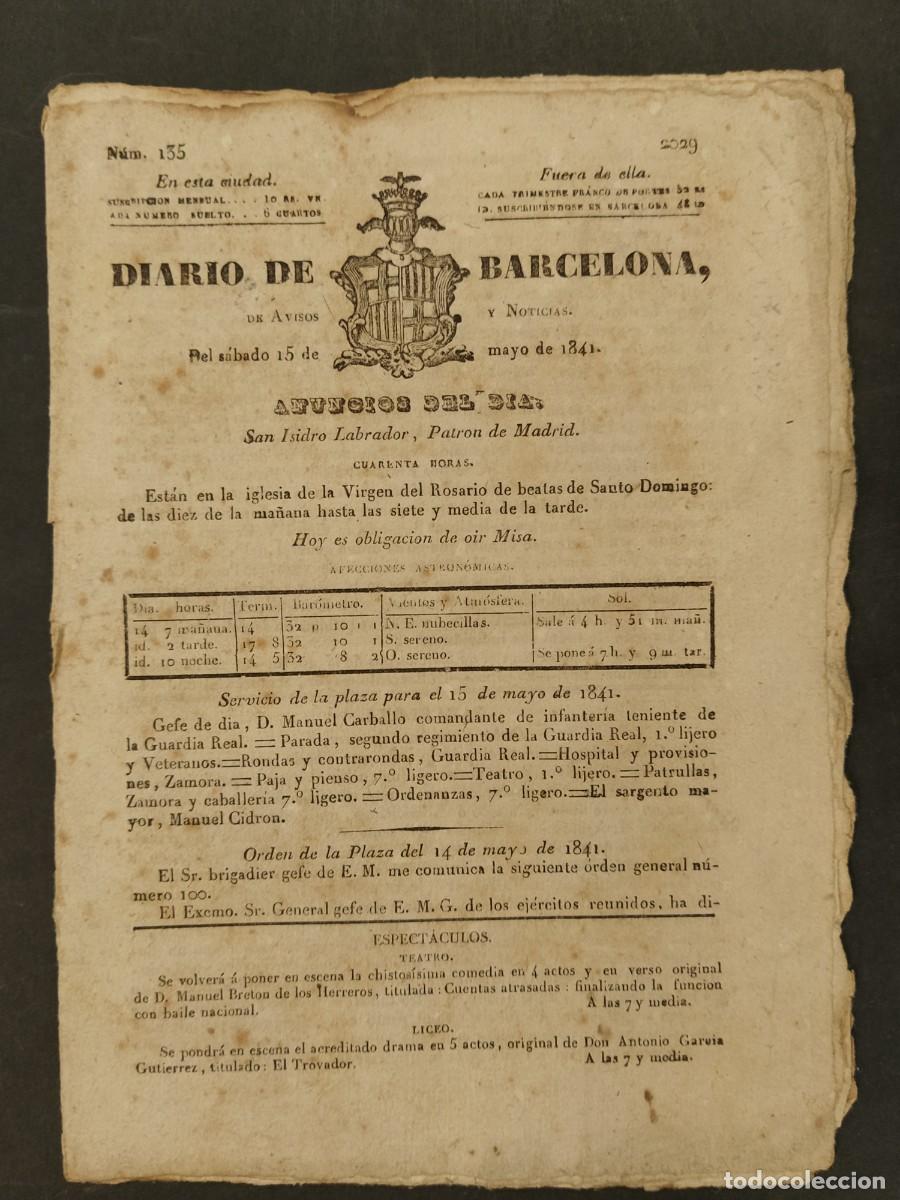 Núm. 135 2029
En esta ciudad. Fuera de ella.
SUSCRIPCION MENSUAL. . . . 10 RS. VN CADA TRIMESTRE FRANCO DE PORTES 52 RS
ADA NUMERO SUELTO. . . 6 CUARTOS ID. SUSCRIBIÉNDOSE EN BARCELONA 48 ID
DIARIO DE BARCELONA,
DE AVISOS Y NOTICIAS.
Del sábado 15 de mayo de 1841.
ANUNCIOS DEL DIA.
San Isidro Labrador, Patron de Madrid.
CUARENTA HORAS.
Están en la iglesia de la Virgen del Rosario de beatas de Santo Domingo:
de las diez de la mañana hasta las siete y media de la tarde.
Hoy es obligacion de oir Misa.
AFECCIONES ASTRONÓMICAS.
Dia. horas. Term. Barómetro. Vientos y Atmósfera. Sol.
14 7 mañana. 14 32 p 10 1 1 N. E. nubecillas. Sale á 4 h. y 51 m. mañ.
id. 2 tarde. 17 8 32 10 1 S. sereno.
id. 10 noche. 14 5 32 8 2 O. sereno. Se pone á 7 h. y 9 m. tar.
Servicio de la plaza para el 15 de mayo de 1841.
Gefe de dia, D. Manuel Carballo comandante de infantería teniente de
la Guardia Real. = Parada, segundo regimiento de la Guardia Real, 1.º lijero
y Veteranos.=Rondas y contrarondas, Guardia Real.=Hospital y provisio-
nes, Zamora. = Paja y pienso, 7.º ligero.=Teatro, 1.º lijero. = Patrullas,
Zamora y caballería 7.º ligero. = Ordenanzas, 7.º ligero.=El sargento ma-
yor, Manuel Cidron.
Orden de la Plaza del 14 de mayo de 1841.
El Sr. brigadier gefe de E. M. me comunica la siguiente órden general nú-
mero 100.
El Excmo. Sr. General gefe de E. M. G. de los ejércitos reunidos, ha di-
ESPECTÁCULOS.
TEATRO.
Se volverá á poner en escena la chistosísima comedia en 4 actos y en verso original
de D. Manuel Breton de los Herreros, titulada: Cuentas atrasadas: finalizando la funcion
con baile nacional. A las 7 y media.
LICEO.
Se pondrá en escena el acreditado drama en 5 actos, original de Don Antonio Garcia
Gutierrez, titulado: El Trovador. A las 7 y media.
todocoleccion